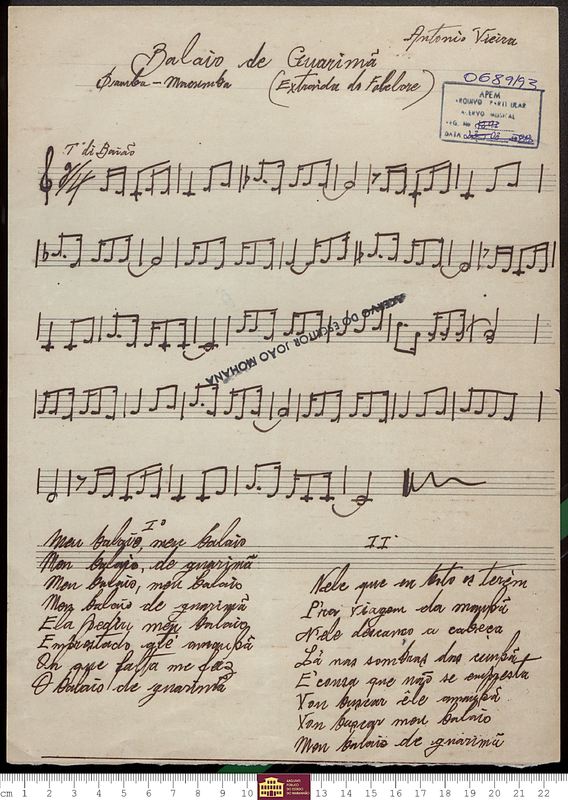 Antonio Vieira
Balaio de Guarimã
(Extraida do Folclore)
0689/93
APEM
ARQUIVO PARTICULAR
ACERVO MUSICAL
REG. No
DATA
Tº di Baião
2/4
ACERVO DO ESCRITOR JOÃO MOHANA
Iº
Meu balaio, meu balaio
Meu balaio, de guarimã
Meu balaio, meu balaio
Meu balaio de guarimã
Ela pediu meu balaio
Emprestado até
Oh que falta me faz
O balaio de guarimã
II
Nele que eu boto os terém
Prá viagem da manhã
Nele descanço a cabeça
Lá nas sombras das
E' cousa que não se empresta
Vou buscar êle amanhã
Vou buscar meu balaio
Meu balaio de guarimã
cm 1 2 3 4 5 6 7 8 9 10 13 14 15 16 17 18 19 20 21 22
ARQUIVO
PÚBLICO
DO ESTADO
DO MARANHÃO